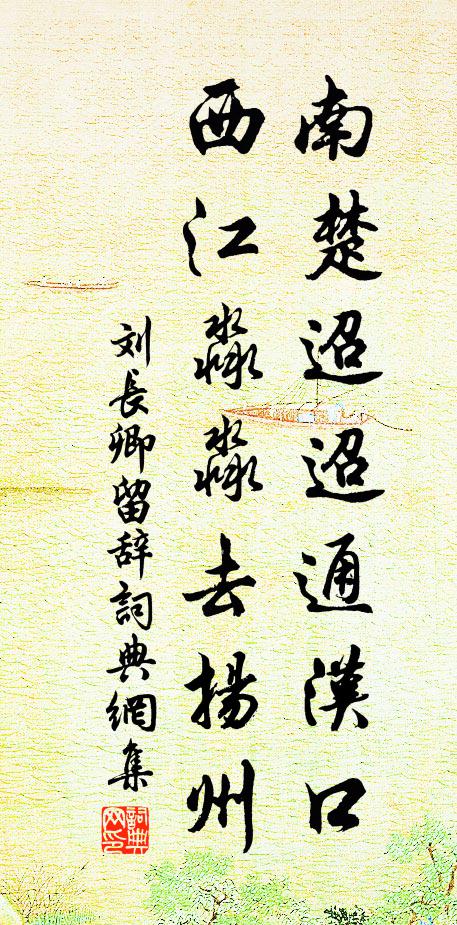 南楚迢迢通漢口
西江淼淼去揚州
刘長卿留辞詞典網集
詞典网印